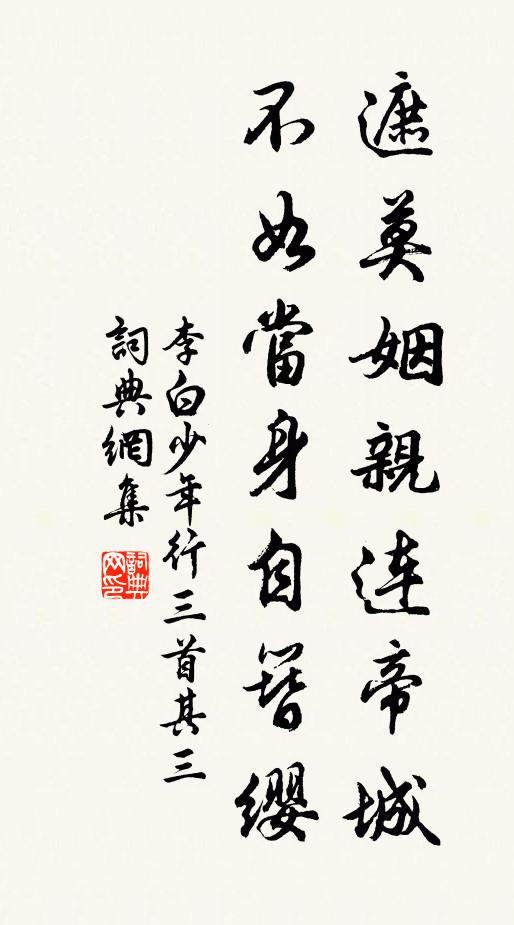 遮莫姻親連帝城
不如當身自簪纓
李白少年行三首其三
詞典網集
詞典網印